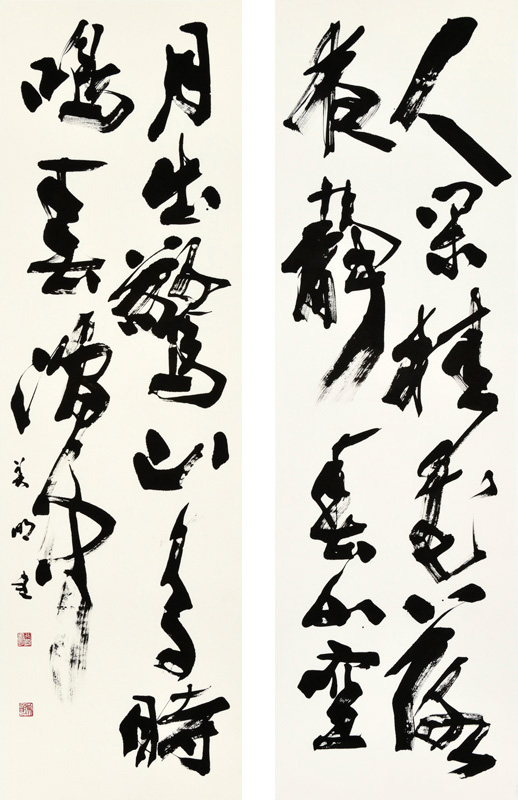 人閑桂花落
夜靜春山空
月出驚山鳥時
鳴春澗中
美明書